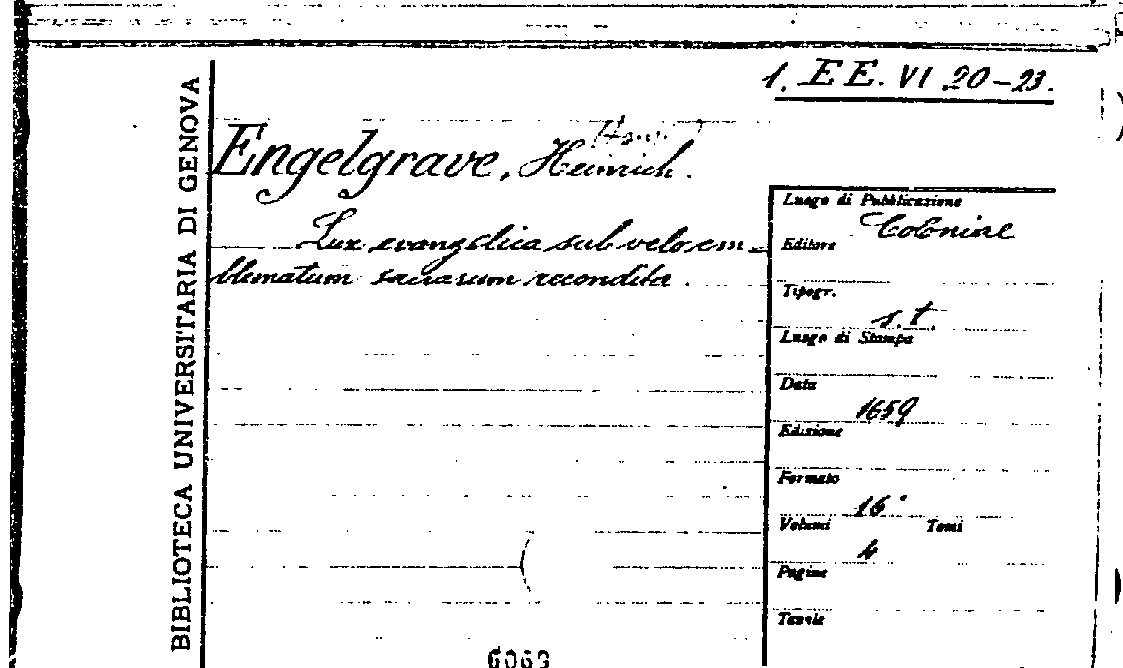 1. EE. VI 20-23.
BIBLIOTECA UNIVERSITARIA DI GENOVA
Engelgrave, Heinrich.
Lux evangelica sub velo em-
blematum sacrarum recondita.
Luogo di Pubblicazione
Coloniae
Editore
Tipogr.
s. t.
Luogo di Stampa
Data
1659
Edizione
Formato
16°
Volumi Tomi
4
Pagine
Tavole
6069